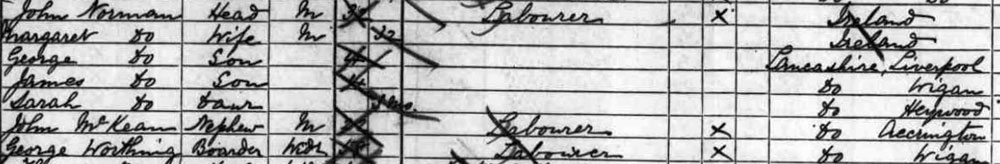 John Norman Head M Labourer x Ireland
Margaret Do Wife M 32 Ireland
George Do Son Lancashire, Liverpool
James Do Son Do Wigan
Sarah Do Daur Do Heywood
John McKean Nephew M Labourer x Do Accrington
George Worthing Boarder Labourer x Do Wigan